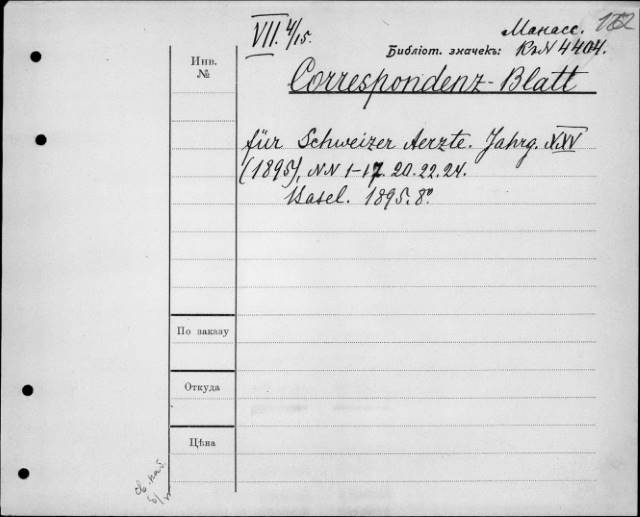 VII. 4/15.
Манасс. 152
Библіот. значекъ: КзN 4404.
Инв. №
Correspondenz-Blatt
für Schweizer Aerzte. Jahrg. XXV
(1895), NN 1-17. 20. 22. 24.
Basel. 1895. 8°.
По заказу
Откуда
Цѣна